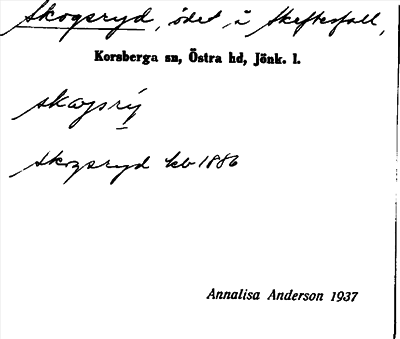 Skogsryd, ödet, å Skeftesfall,
Korsberga sn, Östra hd, Jönk. l.
skogsrý
Skogsryd kb 1886
Annalisa Anderson 1937